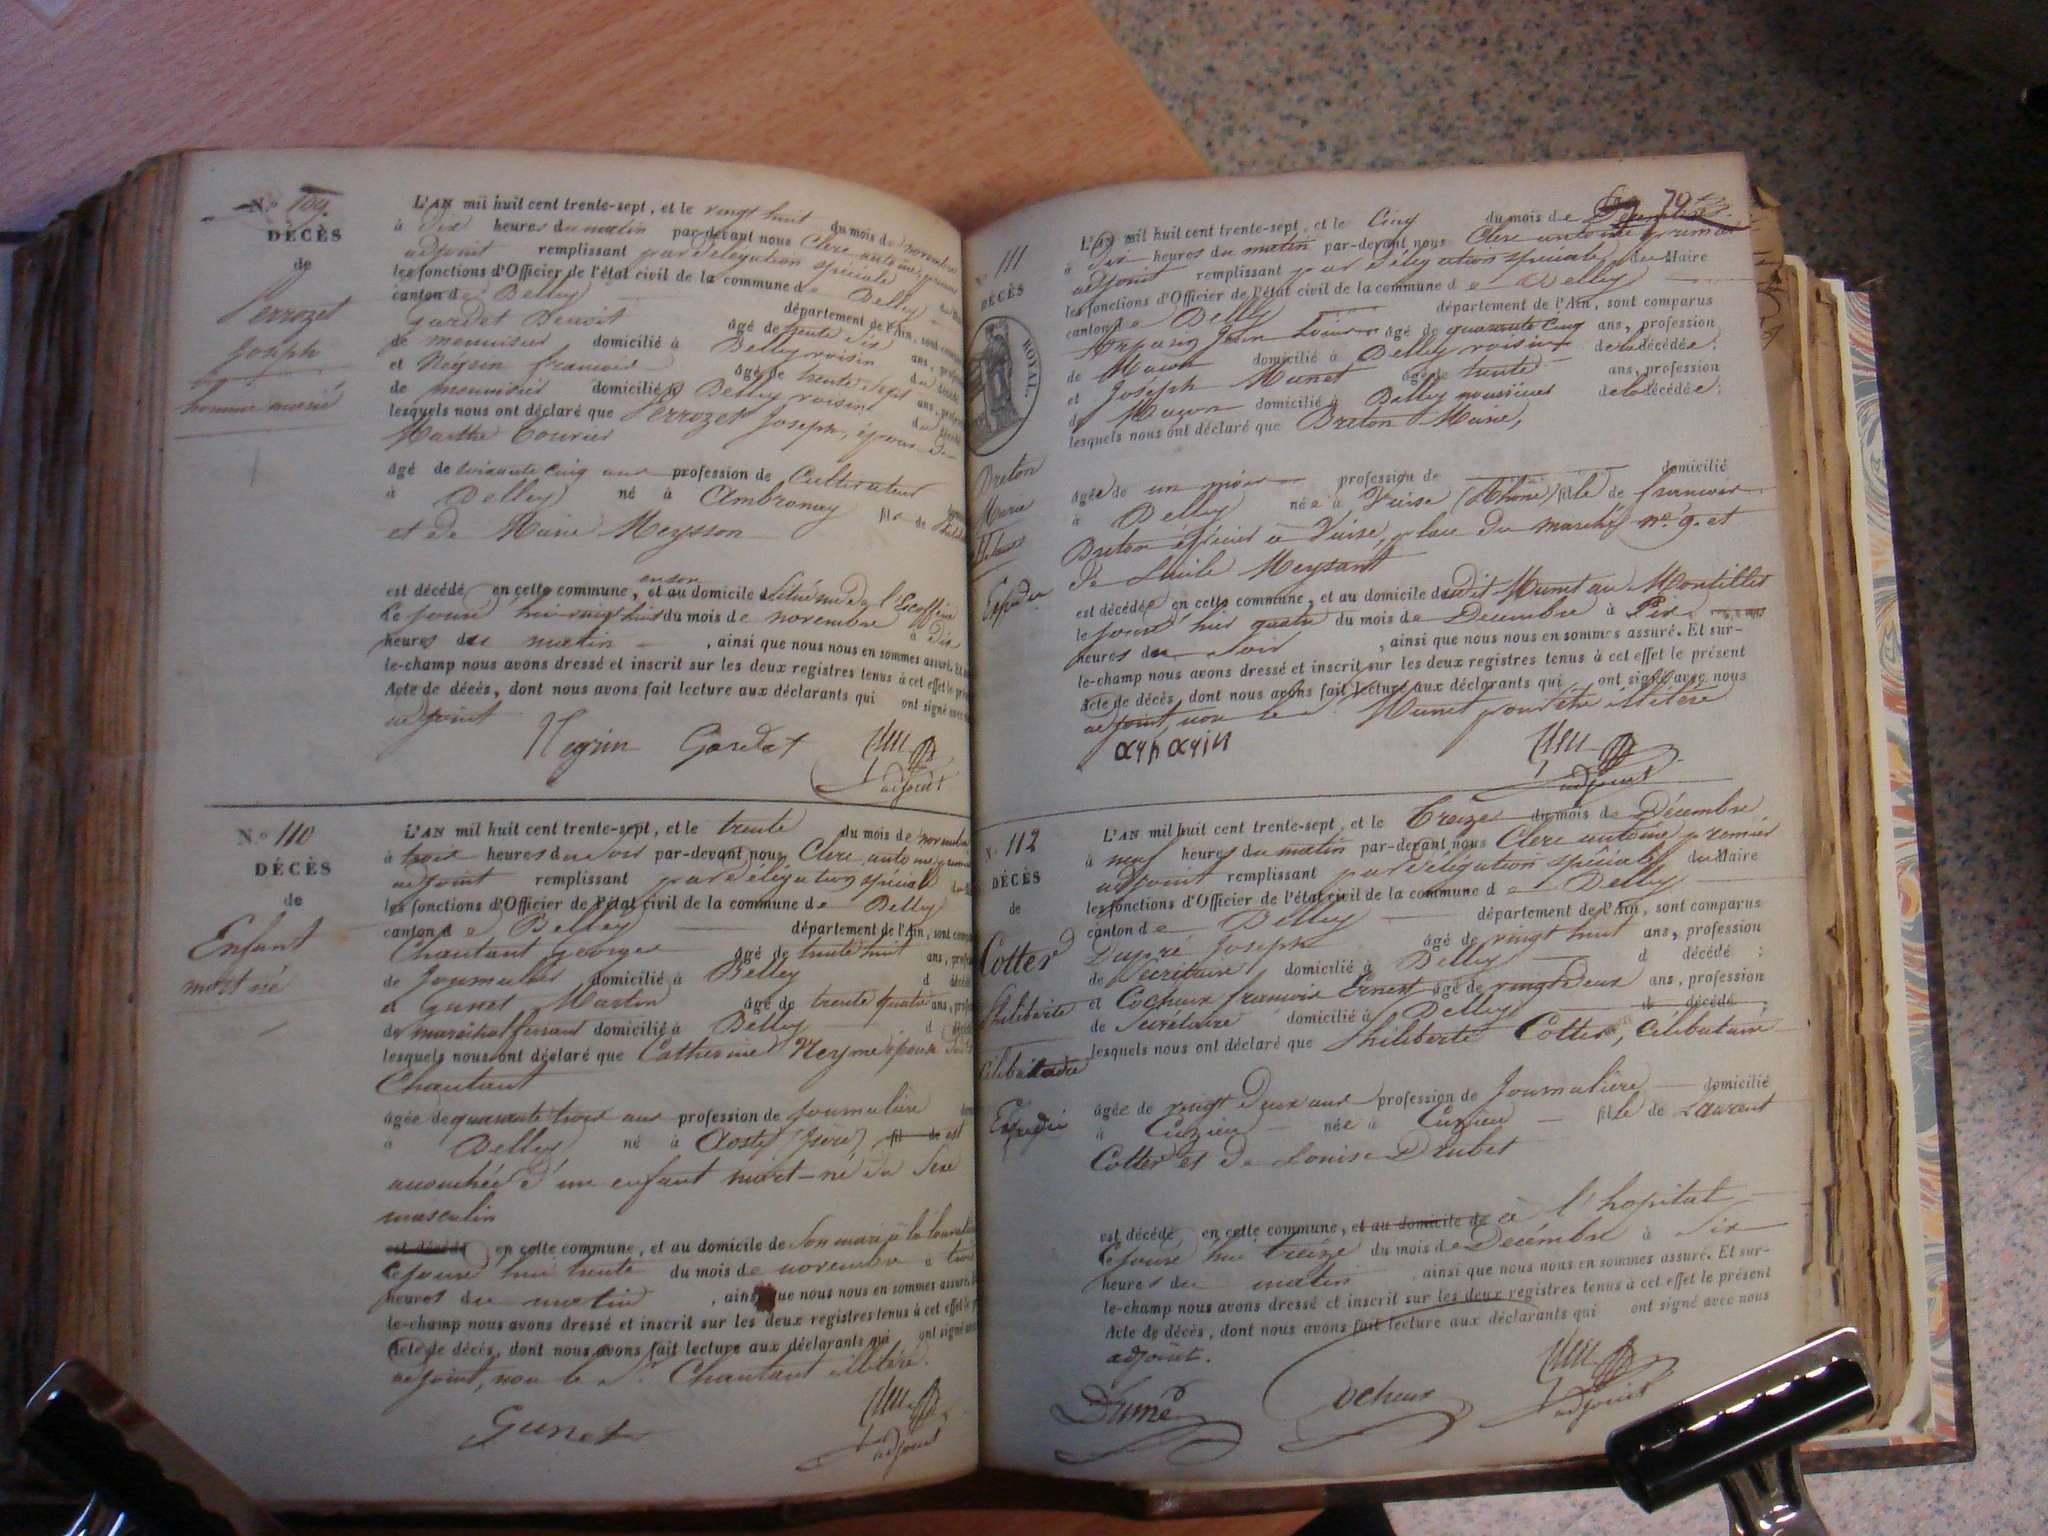 No 109.
DÉCÈS
de
Perrozet
Joseph
homme marié
L'AN mil huit cent trente-sept, et le vingt huit du mois de novembre
à dix heures du matin par-devant nous Clerc antoine premier
adjoint remplissant par délégation spéciale
les fonctions d'Officier de l'état civil de la commune de Belley
canton de Belley département de l'Ain, sont
Gardet Benoit âgé de trente six ans,
de menuisier domicilié à Belley voisin du
et Negrin francois âgé de trente sept ans,
de menuisier domicilié à Belley voisin du
lesquels nous ont déclaré que Perrozet Joseph, époux de
Marthe Courier
âgé de soixante cinq ans profession de Cultivateur
à Belley né à Ambronay fils de
et de Marie Meysson
est décédé en cette commune, et au domicile en son
le jourd'hui vingt huit du mois de novembre à dix
heures du matin , ainsi que nous nous en sommes assuré. Et
le-champ nous avons dressé et inscrit sur les deux registres tenus à cet effet le
Acte de décès, dont nous avons fait lecture aux déclarants qui ont signé avec
adjoint
Negrin Gardet
adjoint
No 110
DÉCÈS
de
Enfant
mort né
L'AN mil huit cent trente-sept, et le trente du mois de novembre
à trois heures du soir par-devant nous Clerc antoine premier
adjoint remplissant par délégation spéciale du
les fonctions d'Officier de l'état civil de la commune de Belley
canton de Belley département de l'Ain, sont
Chautant georges âgé de trente huit ans,
de Journalier domicilié à Belley d
et Gunet Martin âgé de trente quatre ans,
de maréchal ferrant domicilié à Belley d
lesquels nous ont déclaré que Catherine Neyme épouse
Chautant
âgée de quarante trois ans profession de journalière
à Belley né à Aoste (Isère) fil de est
accouchée d'un enfant mort-né du sexe
masculin
est décédé en cette commune, et au domicile de son mari à la
le jourd'hui trente du mois de novembre à trois
heures du matin , ainsi que nous nous en sommes assuré.
le-champ nous avons dressé et inscrit sur les deux registres tenus à cet effet le
Acte de décès, dont nous avons fait lecture aux déclarants qui ont signé
adjoint, non le Sr. Chautant illitéré.
Gunet
adjoint
79
No 111
DÉCÈS
ROYAL
Breton
Marie
Expédié
L'AN mil huit cent trente-sept, et le Cinq du mois de Décembre
à Dix heures du matin par-devant nous Clerc antoine premier
adjoint remplissant par délégation spéciale du Maire
les fonctions d'Officier de l'état civil de la commune de Belley
canton de Belley département de l'Ain, sont comparus
Jean Louis âgé de quarante cinq ans, profession
de Maçon domicilié à Belley voisin de la décédée;
et Joseph Munet âgé de trente ans, profession
de Maçon domicilié à Belley nourricier de la décédée;
lesquels nous ont déclaré que Breton Marie,
âgée de un mois profession de domicilié
à Belley née à Vaise (Rhône) fille de francois
Breton épicier à Vaise, place du marché no. 9. et
de Lucile Meysant
est décédée en cette commune, et au domicile du dit Munet au Montillet
le jourd'hier quatre du mois de Décembre à Dix
heures du soir , ainsi que nous nous en sommes assuré. Et sur-
le-champ nous avons dressé et inscrit sur les deux registres tenus à cet effet le présent
Acte de décès, dont nous avons fait lecture aux déclarants qui ont signé avec nous
adjoint, non le d. Munet pour être illitéré
adjoint
No 112
DÉCÈS
de
Cotter
Philiberte
Célibataire
Expédié
L'AN mil huit cent trente-sept, et le Treize du mois de Décembre
à neuf heures du matin par-devant nous Clerc antoine premier
adjoint remplissant par délégation spéciale du Maire
les fonctions d'Officier de l'état civil de la commune de Belley
canton de Belley département de l'Ain, sont comparus
Joseph âgé de vingt huit ans, profession
de Secrétaire domicilié à Belley d décédé ;
et Cocheux francois Ernest âgé de vingt deux ans, profession
de Secrétaire domicilié à Belley d décédé ;
lesquels nous ont déclaré que Philiberte Cotter, Célibataire
âgée de vingt deux ans profession de Journalière domicilié
à Cuzieu née à Cuzieu fille de Laurent
Cotter et de Louise Drubet
est décédé en cette commune, et au domicile de à l'hopital
le jourd'hui treize du mois de Décembre à Six
heures du matin , ainsi que nous nous en sommes assuré. Et sur-
le-champ nous avons dressé et inscrit sur les deux registres tenus à cet effet le présent
Acte de décès, dont nous avons fait lecture aux déclarants qui ont signé avec nous
adjoint.
Cocheux
adjoint